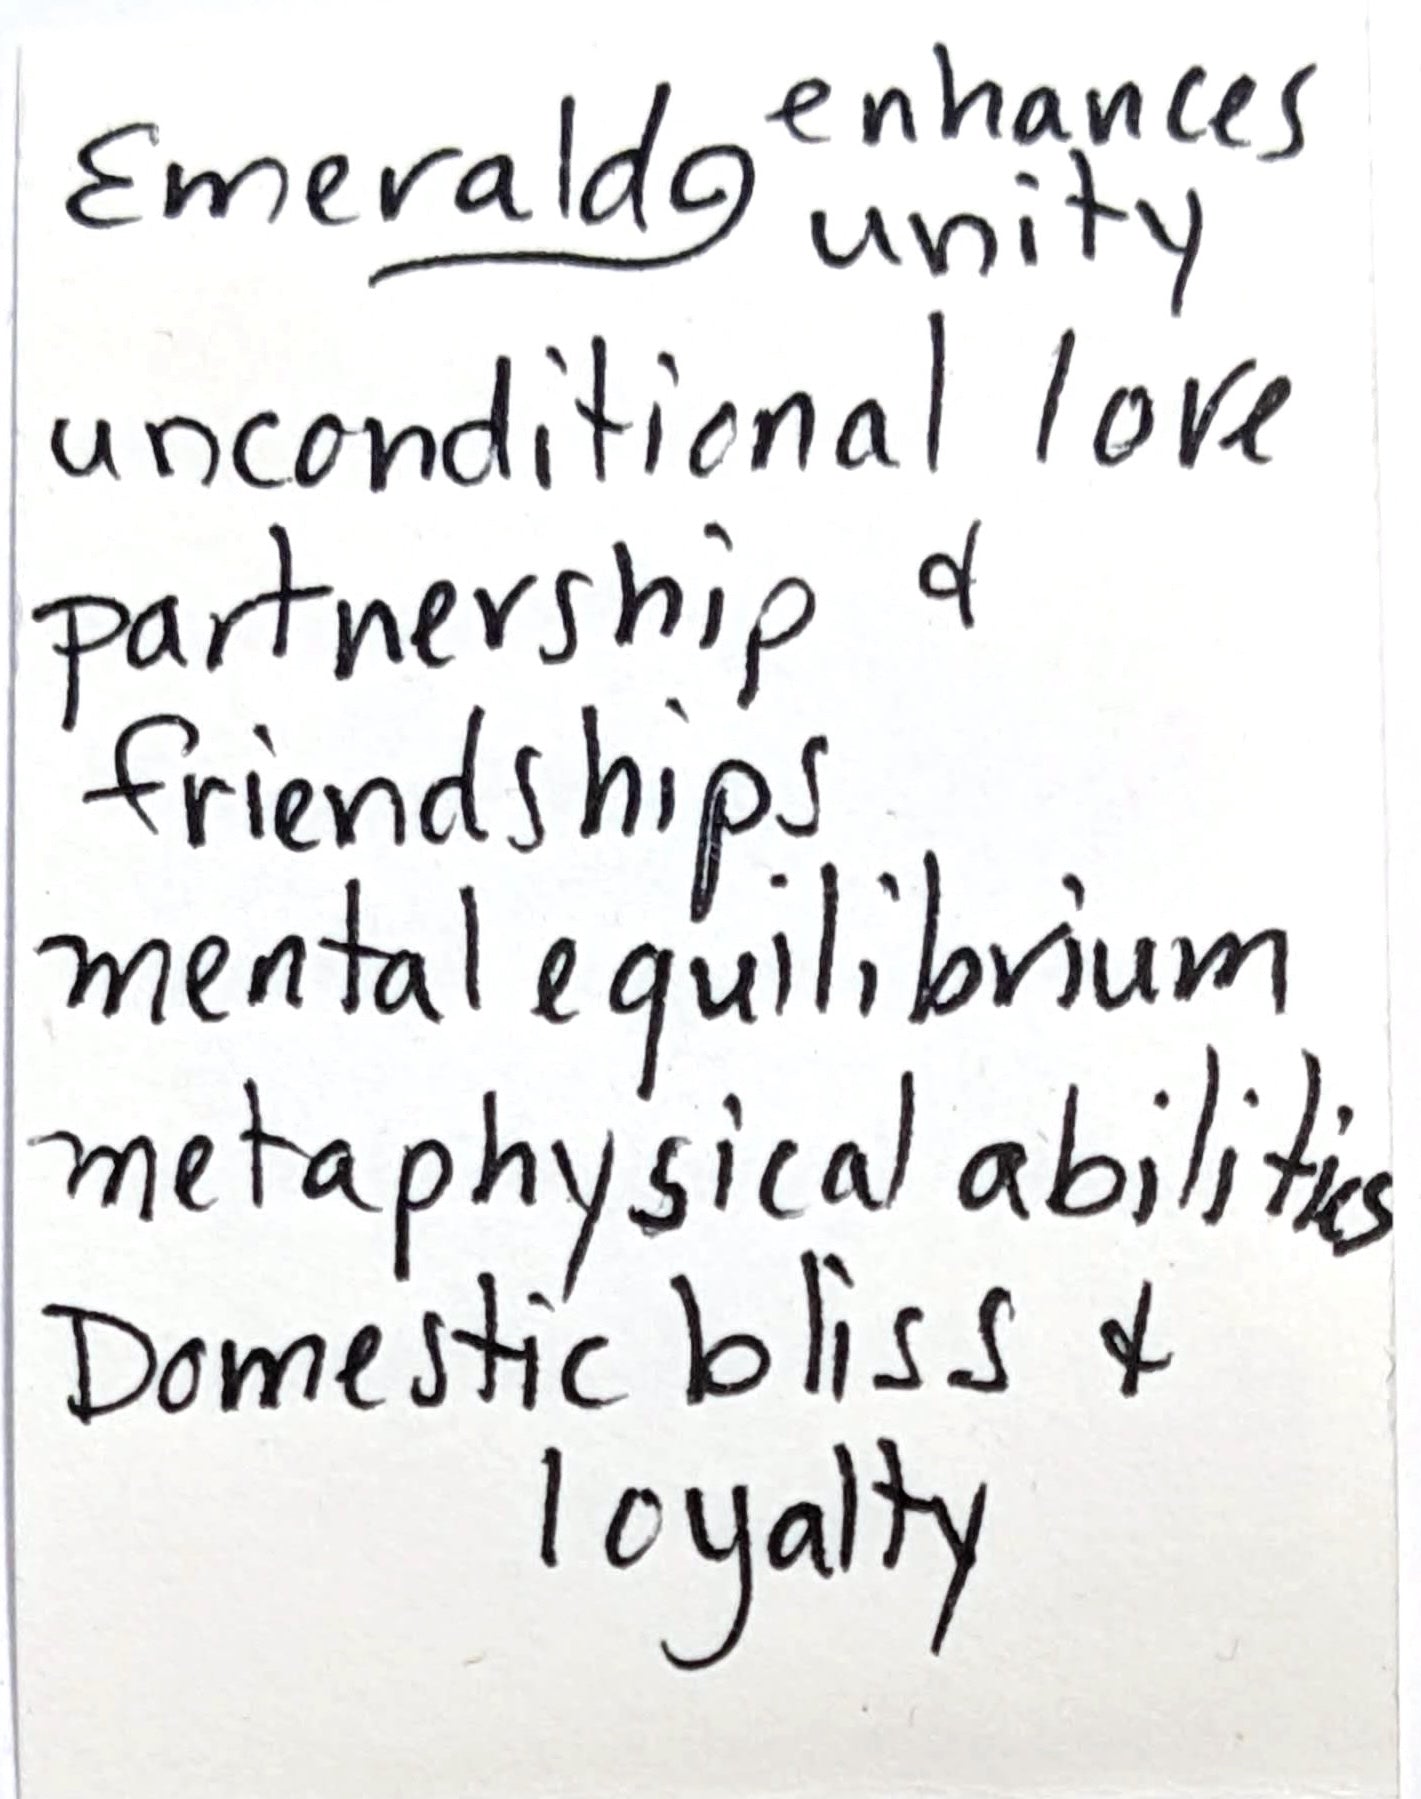 Emerald enhances
unity
unconditional love
partnership &
friendships
mental equilibrium
metaphysical abilities
Domestic bliss &
loyalty